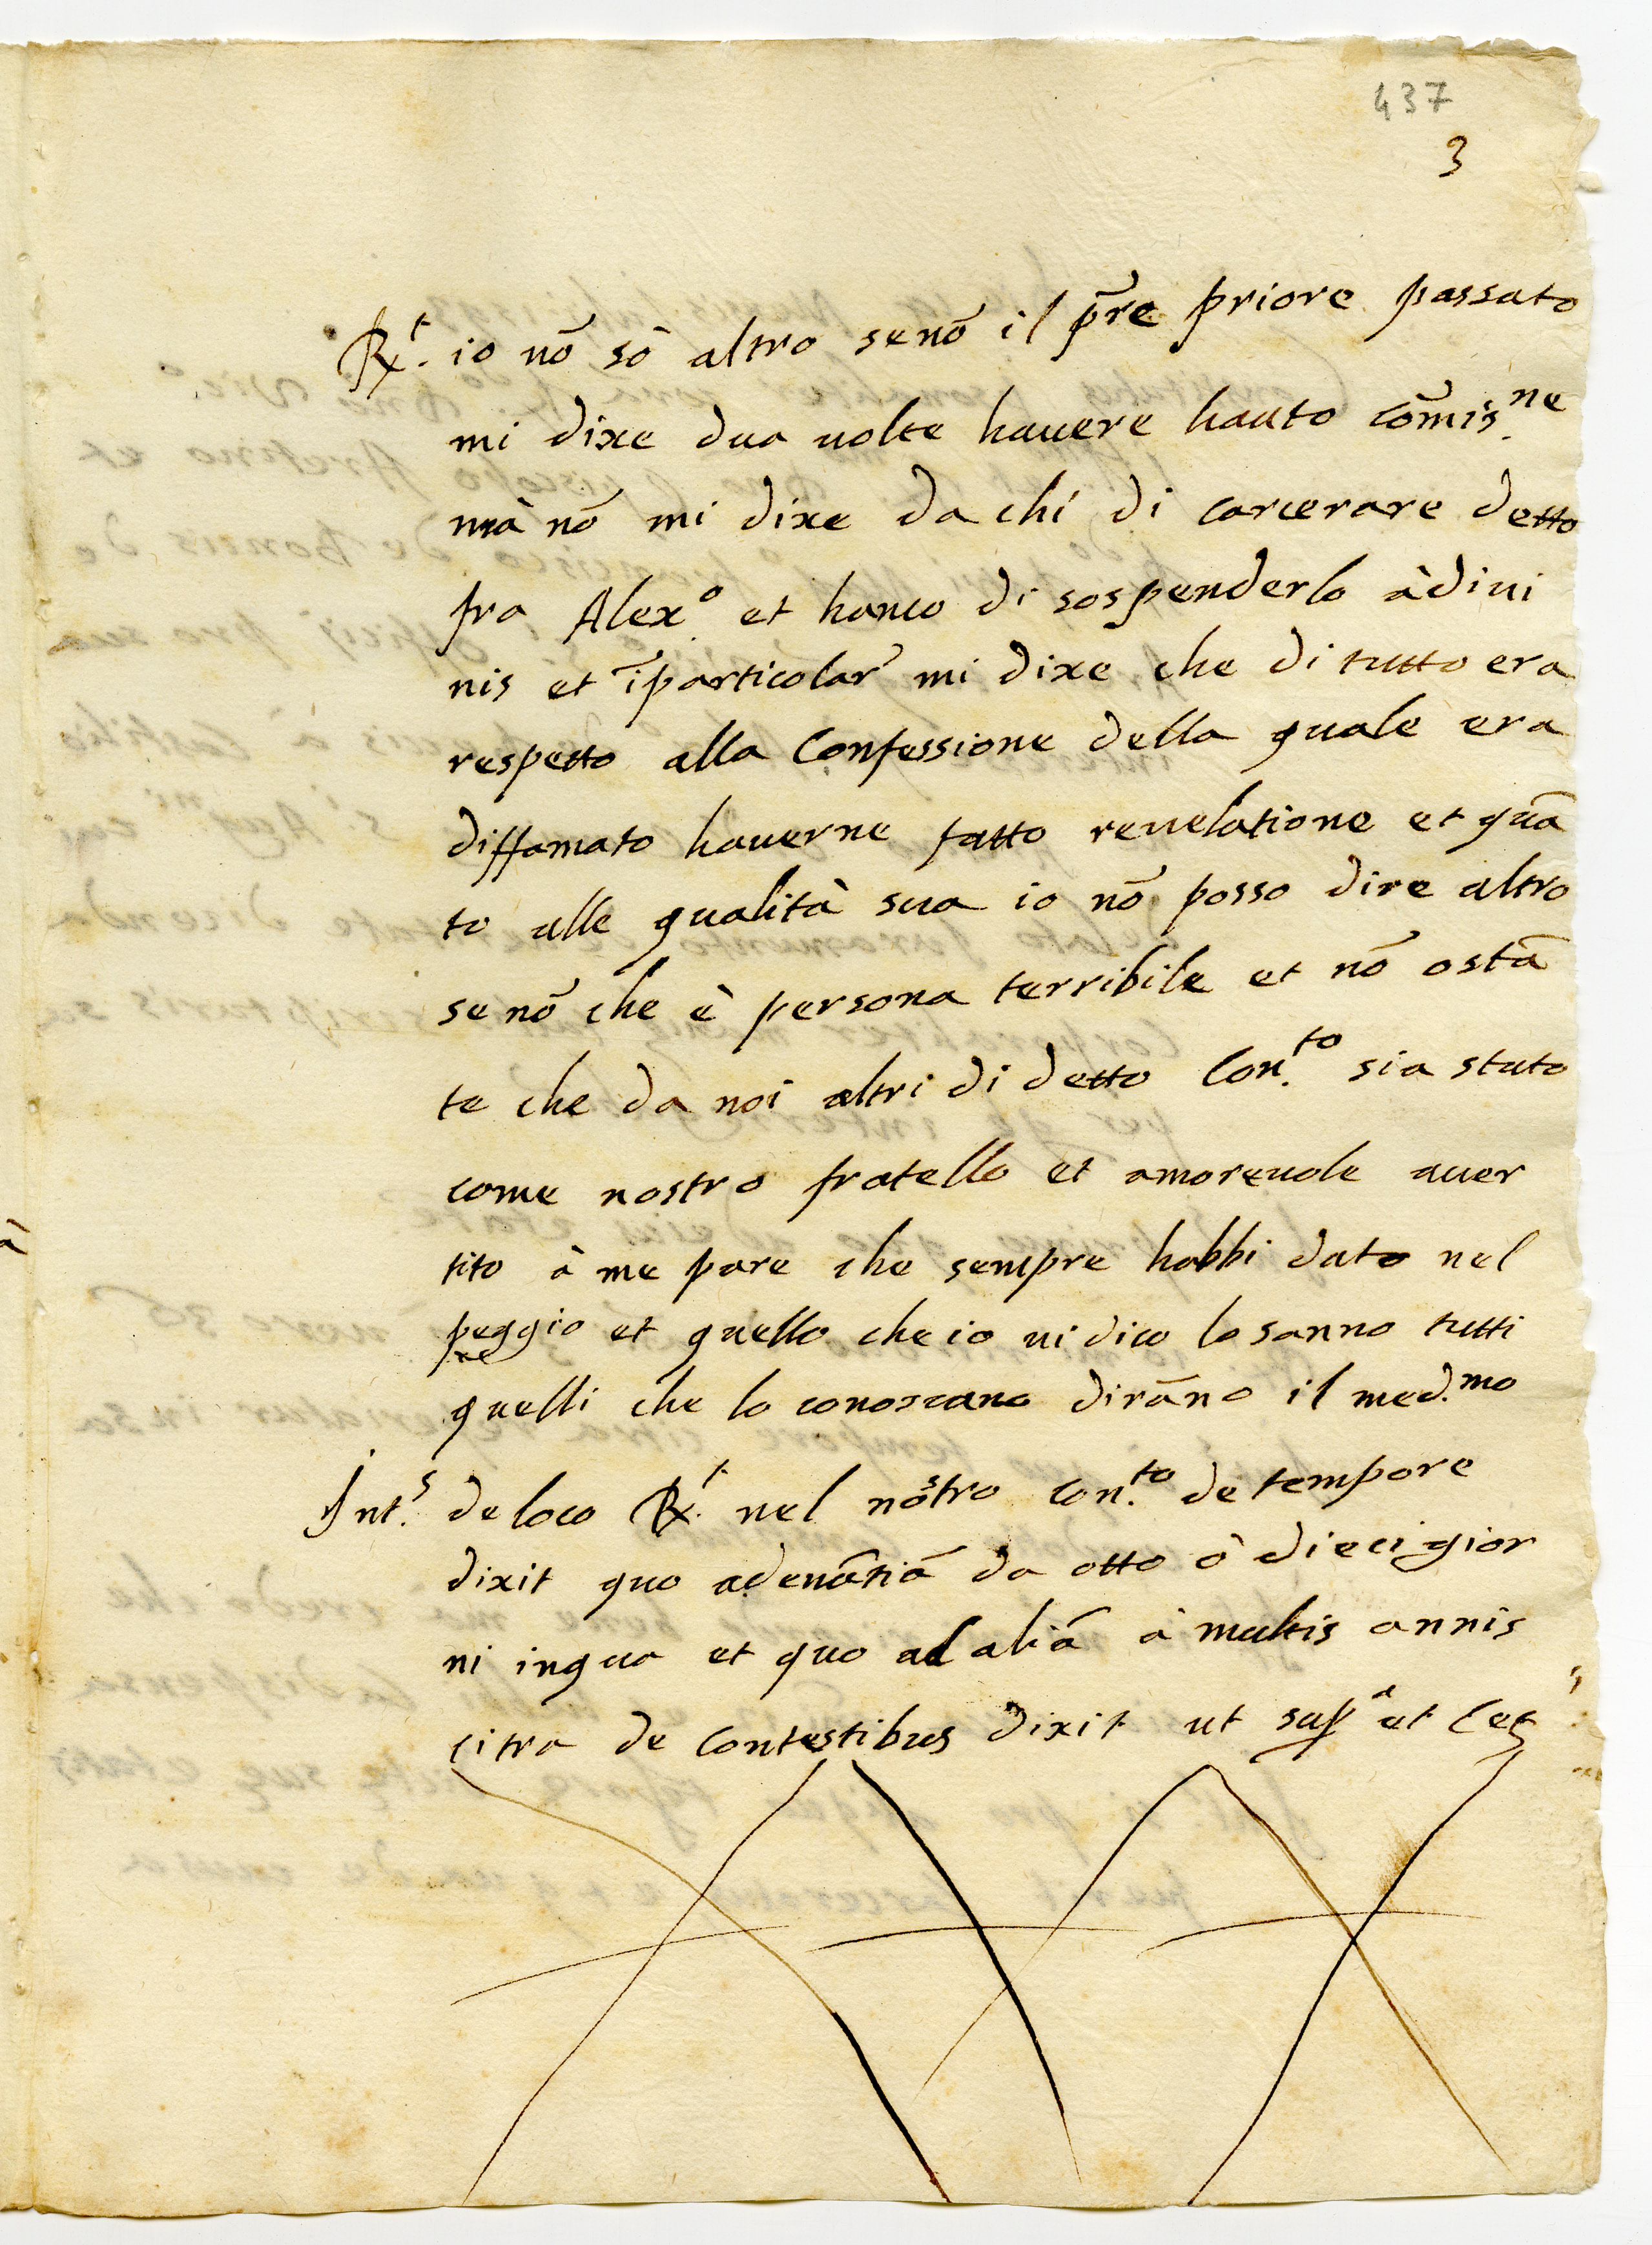 437
3
Rx.t io nō sò altro senō il p̄re priore passato
mi dixe dua uolte hauere hauto cōmis.ne
mà nō mi dixe da chi di carcerare detto
fra Alex.o et hanco di sospenderlo àdiui
nis et īparticolar̄ mi dixe che di tutto era
respetto alla Confessione della quale era
diffamato hauerne fatto reuelatione et quā
to alle qualità sua io nō posso dire altro
se nō che è persona terribile et nō ostā
te che da noi altri di detto Con.to sia stato
come nostro fratello et amoreuole auer
tito à me pare che sempre habbi dato nel
peggio et quello che io ui dico lo sanno tutti
quelli che lo conoscano dirāno il med.mo
Int.s de loco Rx.t nel nostro con.to de tempore
dixit quo ad enātiā da otto o dieci gior
ni in qua et quo ad aliā à multis annis
citra de contestibus dixit ut sup.a et Cet